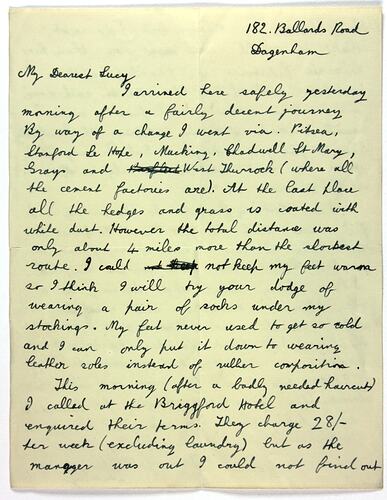 182. Ballards Road
Dagenham
My Dearest Lucy
I arrived here safely yesterday
morning after a fairly decent journey
By way of a change I went via. Pitsea,
Stanford Le Hope, Mucking, Chadwell St Mary,
Grays and West Thurrock (where all
the cement factories are). At the last place
all the hedges and grass is coated with
white dust. However the total distance was
only about 4 miles more than the shortest
route. I could not keep my feet warm
so I think I will try your dodge of
wearing a pair of socks under my
stockings. My feet never used to get so cold
and I can only put it down to wearing
leather soles instead of rubber composition.
This morning (after a badly needed haircut)
I called at the Hotel and
enquired their terms. They charge 28/-
per week (excluding laundry) but as the
manager was out I could not find out